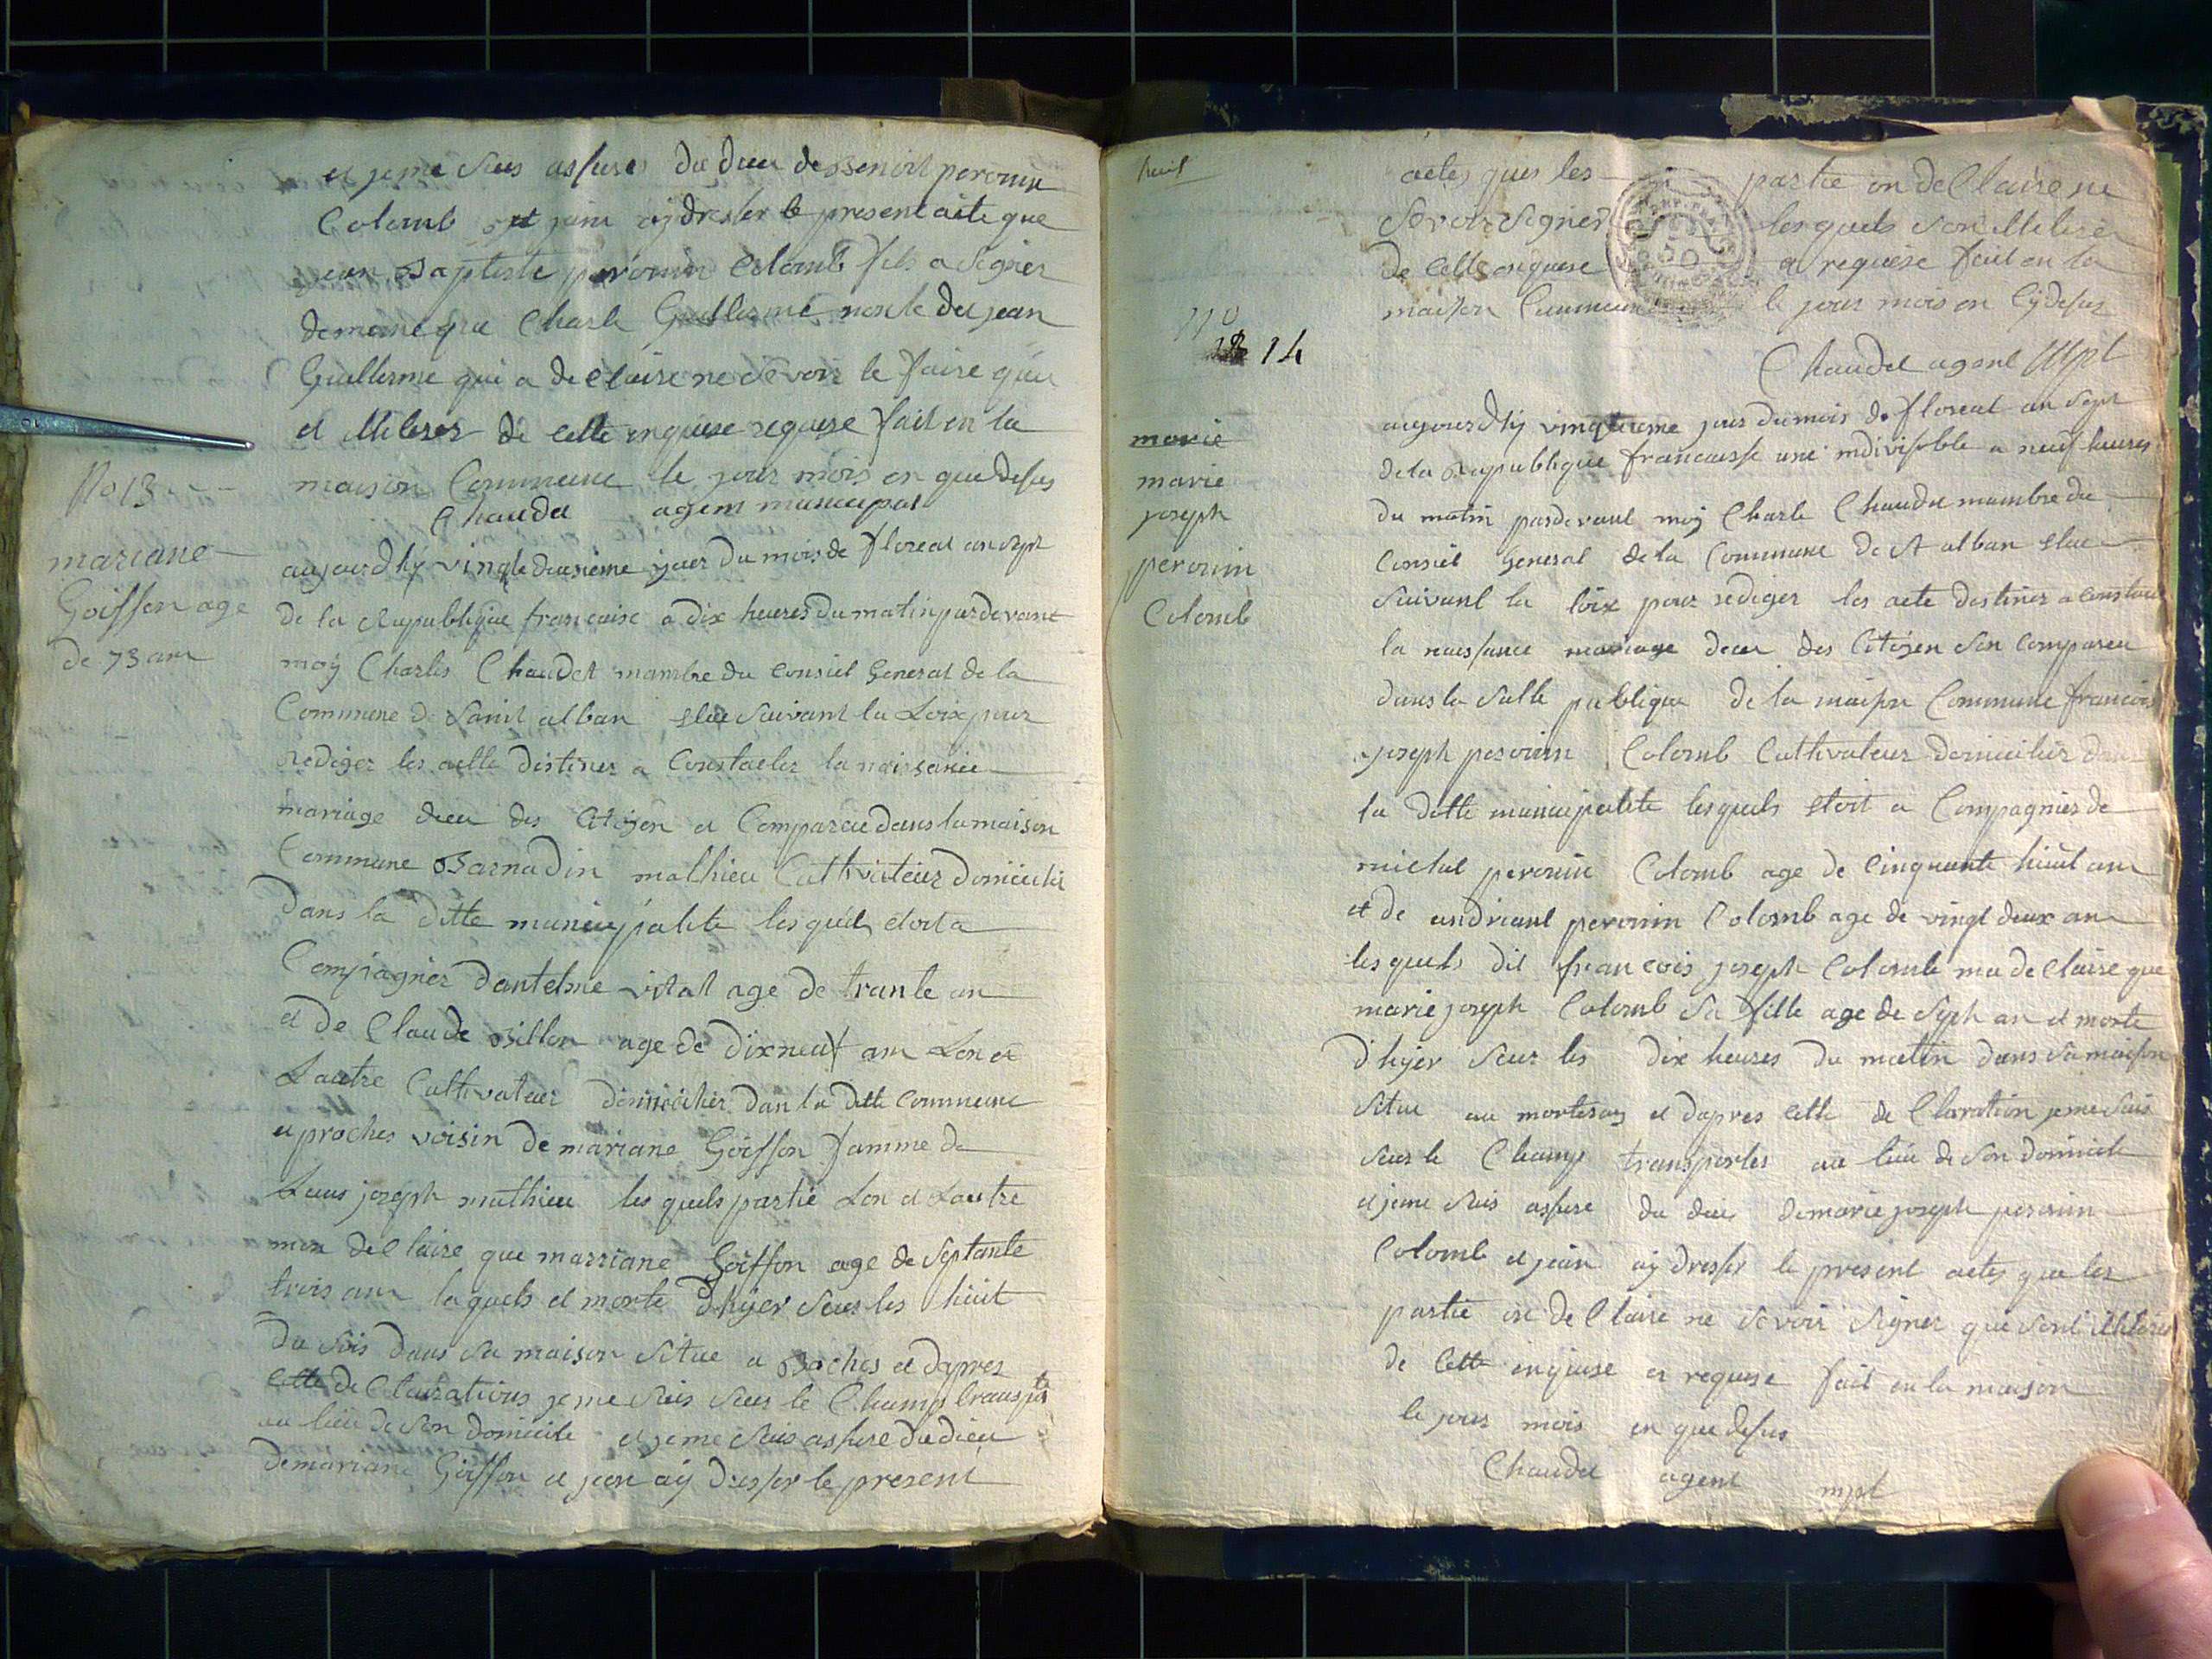 et jeme suis assure du deces de Benoit peronin
Colomb et jean ay dresser le present acte que
jean Baptiste peronin Colomb fils a signer
de meme que Charle Guillerme non le dit jean
Guillerme qui a declaire ne sevoir le faire
et illiteres de cette enquise requise fait en la
maison Commune le jour mois en que desus
Chaudet agent municipal
No 13
mariane
Goiffon age
de 73 ans
aujourdhÿ vingtdeusieme jour du mois de floreal an sept
de la Republique francaise a dix heures du matin pardevant
moÿ Charles Chaudet mambre du Consiel General de la
Commune de Saint alban elue suivant la Loix pour
Rediger les actte destiner a Constatter la naissance
mariage deces des Citoÿen et Comparue dans la maison
Commune Barnadin mathieu Cultivateur domicilié
dans la ditte municipalite lesquel etoit a
Compagnier dantelme vital age de trante an
et de Claude Billon age de dix neuf an Lon et
Lautre Cultivateur domicilier dan la ditte commune
et proches voisin de mariane Goiffon famme de
Louis joseph mathieu les quels partie Lon et Lautre
mon declaire que marriane Goiffon age de septante
trois an laquels et morte dhÿer seur les huit
du soir dans sa maison situe a Boches et dapres
cette declairations jeme suis seur le Champ transpté
au lieu de son domicile et jeme suis assure du dieu
de mariane Goiffon et jean aÿ dresser le present
huit
actes ques les partie on declaire ne
sevoir signer lesquels son illiterer
de cette enquise a requise fait en la
maison Commune le jour mois en cÿ desus
Chaudet agent mpl
50
no
14
marie
marie
joseph
peronin
Colomb
aujourdhÿ vingtieme jour du mois de floreal an sept
de la Republique francaisse une indivisible a neuf heures
du matin pardevant moÿ Charle Chaudet mambre du
Consiel General de la Commune de St alban elue
suivant la loix pour rediger les acte destiner a constater
la naissance mariage deces des Citoÿen son Comparue
dans la salle publique de la maison Commune francois
joseph peronin Colomb Cultivateur domicilier dans
la ditte municipalite lesquels etoit a Compagnier de
michel peronin Colomb age de Cinquante huit an
et de andriant peronin Colomb age de vingt deux an
lesquels dit francois joseph Colomb ma declaire que
marie joseph Colomb sa fille age de seph an et morte
dhÿer seur les dix heures du matin dans sa maison
situe au morteray et dapres cette de Claration jeme suis
seur le Champ transporter au lieu de son domicile
et jeme suis assure du dieu de marie joseph peronin
Colomb et jean aÿ dresser le present actes que les
partie on de Claire ne sevoir signer qui sont illiterer
de cette enquise et requise fait en la maison
le jour mois en que desus
Chaudet agent mpl